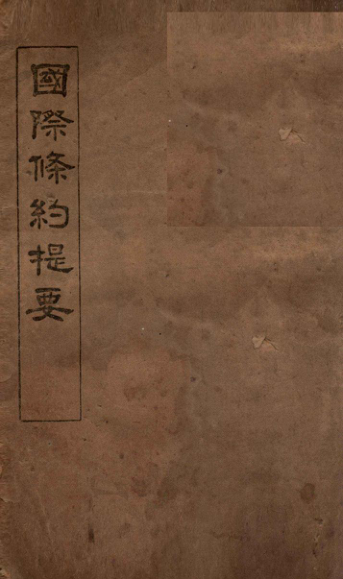 國際條約提要